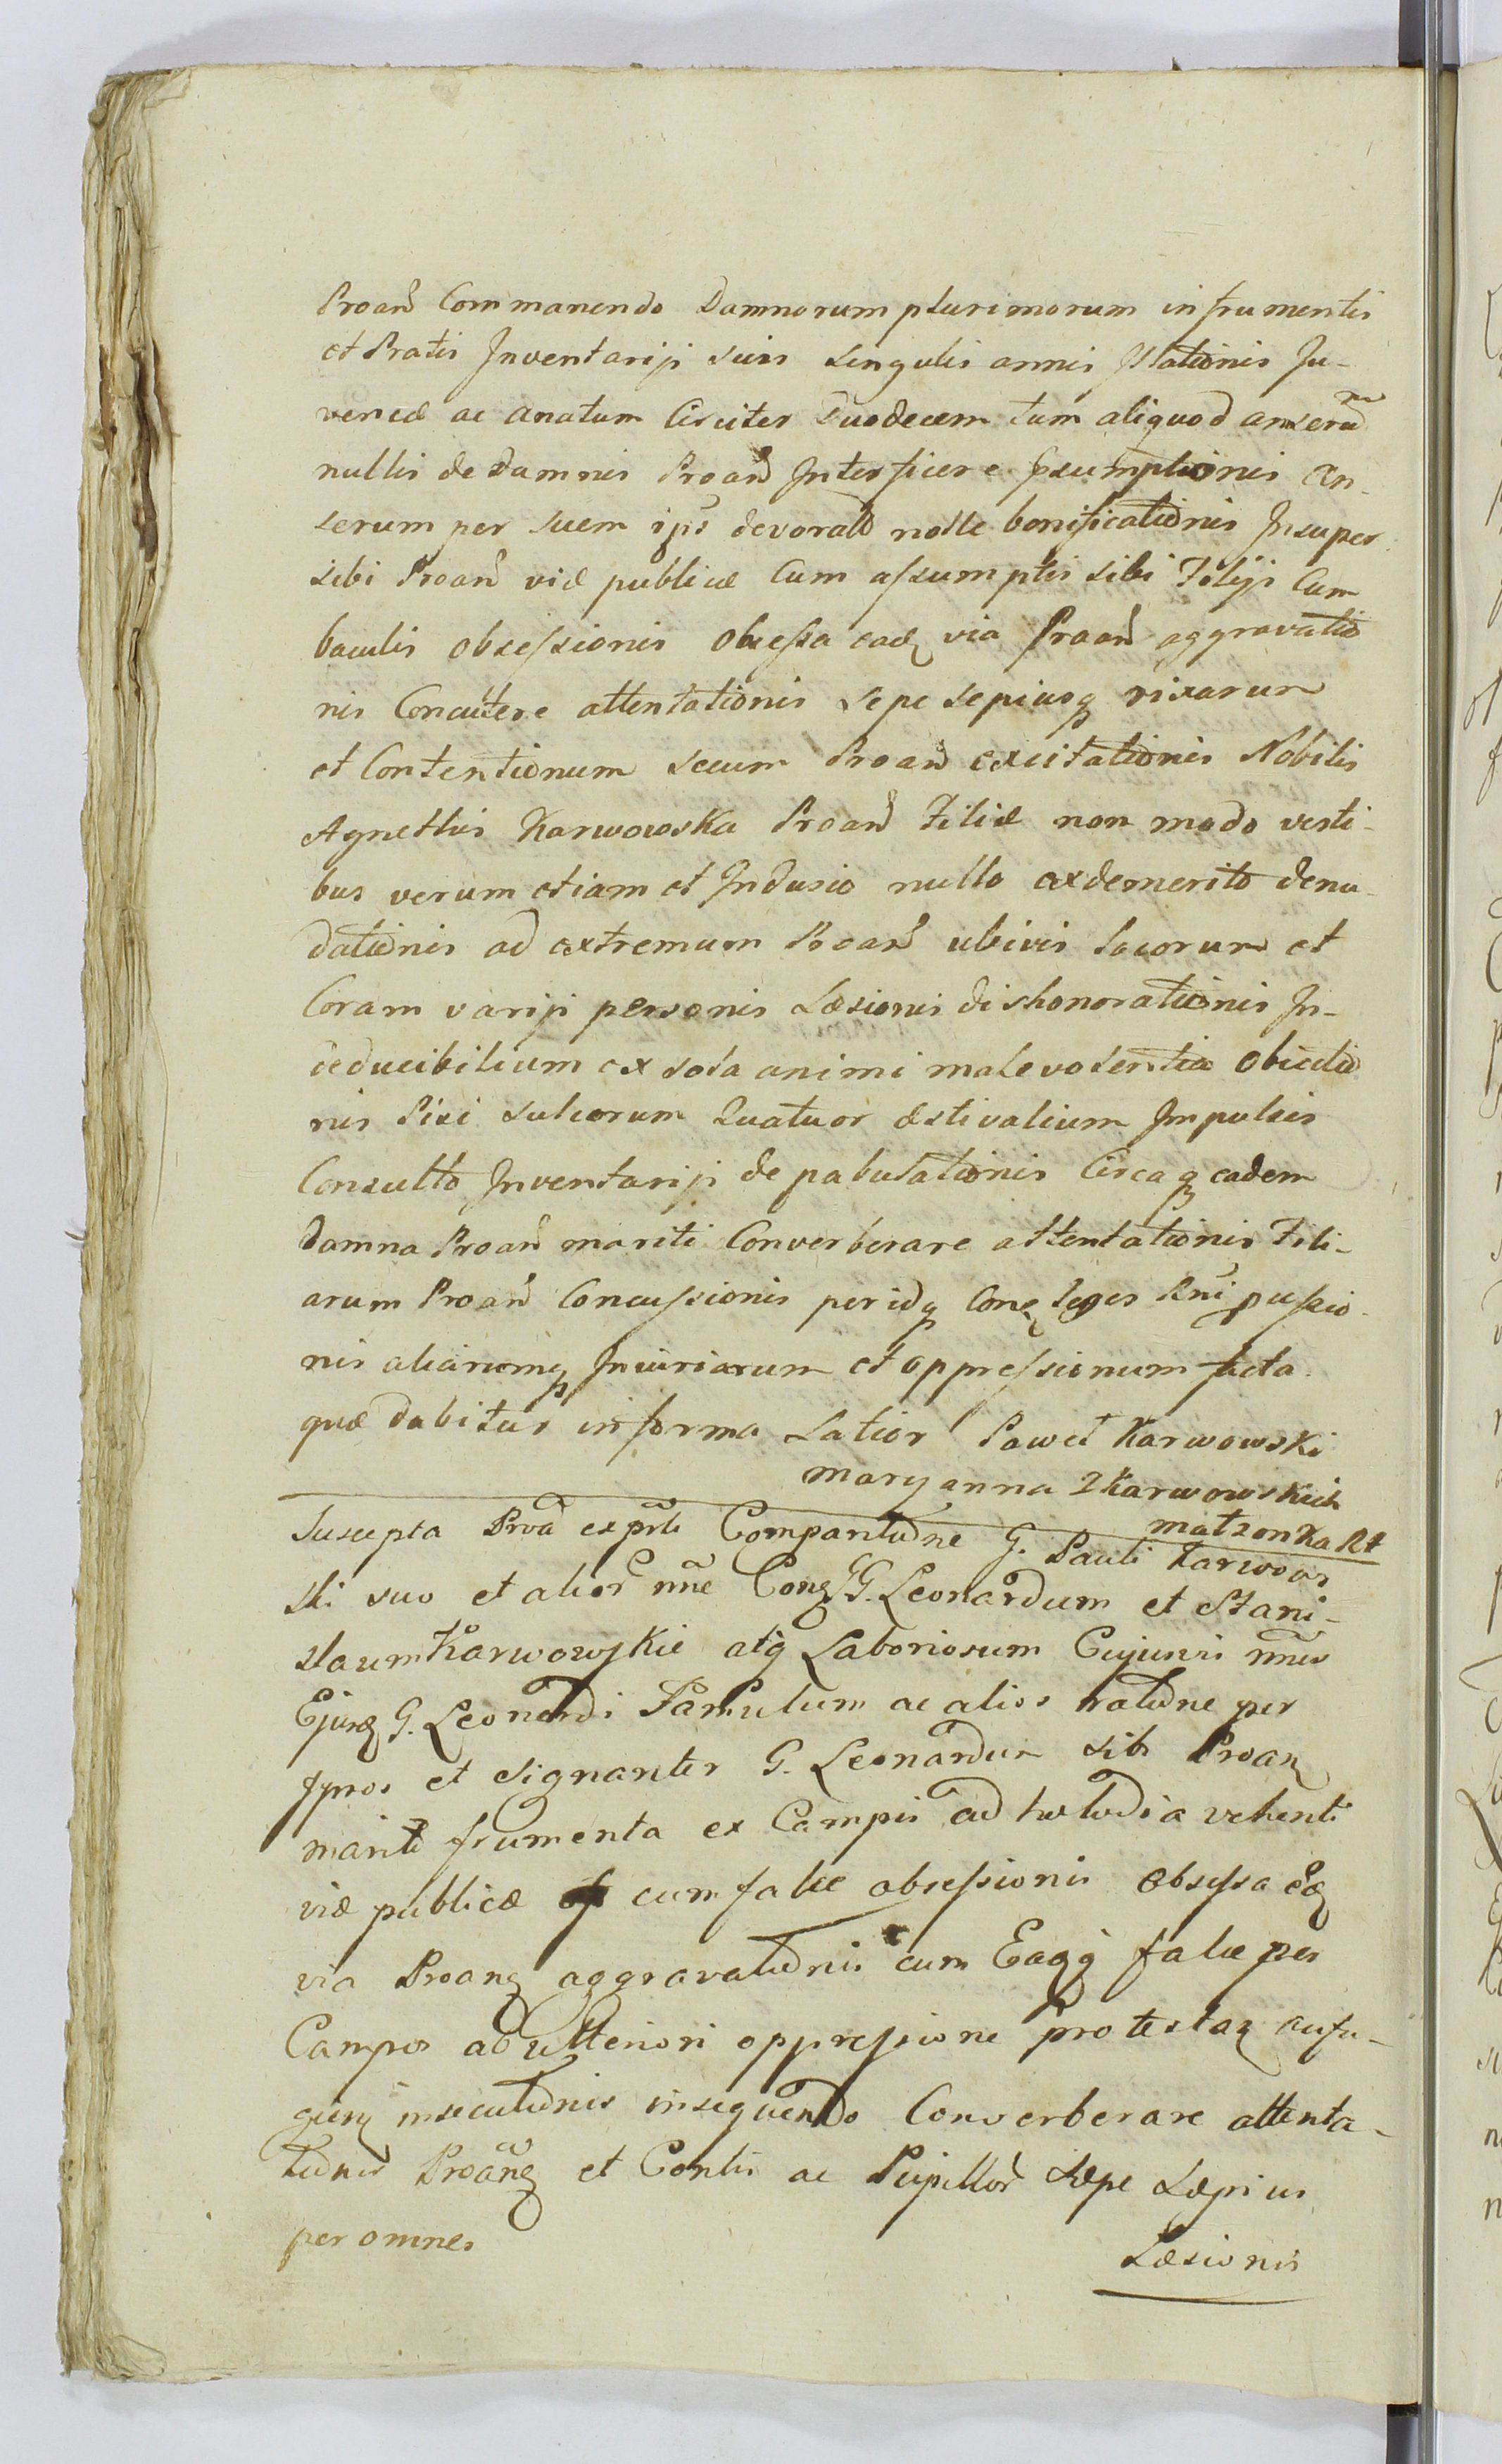 Proan̄ Commanendo Damnorum plurimorum in frumentis
et Pratis Inventariji suis singulis annis Illationis Ju-
vencæ ac anatum Circiter Duodecem tum aliquod anserū
nullis de damnis Proan̄ Interficere psumptionis An-
serum per suem ips devorato nolle bonificationis Insuper
sibi Proan̄ viæ publicæ Cum assumptis sibi Filijs Cum
baculis obsessionis Obsessa eadę via Proan̄ aggravatio
nis Concutere attentationis sepe sepiusq rixarum
et Contentionum secum Proan̄ excitationis Nobilis
Agnethis Karwowska Proan̄ Filiæ non modo vesti-
bus verum etiam et Indusio nullo ex demerito denu-
dationis ad extremum Proan̄ ubivis locorum et
Coram varijs personis Læsionis dishonorationis In-
deducibilium ex sola animi malevolentia Obiectio
nis Pisi sulcorum Quatuor æstivalium Impulsis
Consulto Inventariji depabulationis Circa q eadem
Damna Proan̄ mariti Converberare attentationis Fili-
arum Proan̄ Concussionis per idq Conę leges Rni pussio-
nis aliarumq Iniuriarum et oppressionum facta
quæ dabitur in forma Latior Paweł Karwowski
Maryanna Z Karwowskich
małzonka
Suscepta Proā ex prte Comparitione G. Pauli Karwow
ski suo et alior nne Conę GG. Leonardum et Stani-
slaum Karwowskie atq Laboriosum Cujusvi nnis
Ejusdę G. Leonardi Famulum ac alios ratione per
Ipsos et signanter G. Leonardum sibi Proan
mariti frumenta ex Campis ad vehenti
viæ publicæ cum falce obsessionis Obsessa eaę
via Proanę aggravationis cum Eaqq falce per
Campos ab ulteriori oppressione protestaę aufu-
gienę insecutionis insequendo Converberare attenta-
tionis Proanę et Contis ac Pupillor Sæpe Sæpius
per omnes
Læsionis